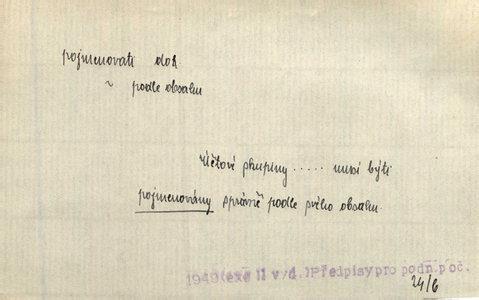 pojmenovati dok
~ podle obsahu
Účtové skupiny ..... musí býti
pojmenovány správně podle svého obsahu.
1949(exc 11 v/d.)Předpisy pro podn.poč.
24/6